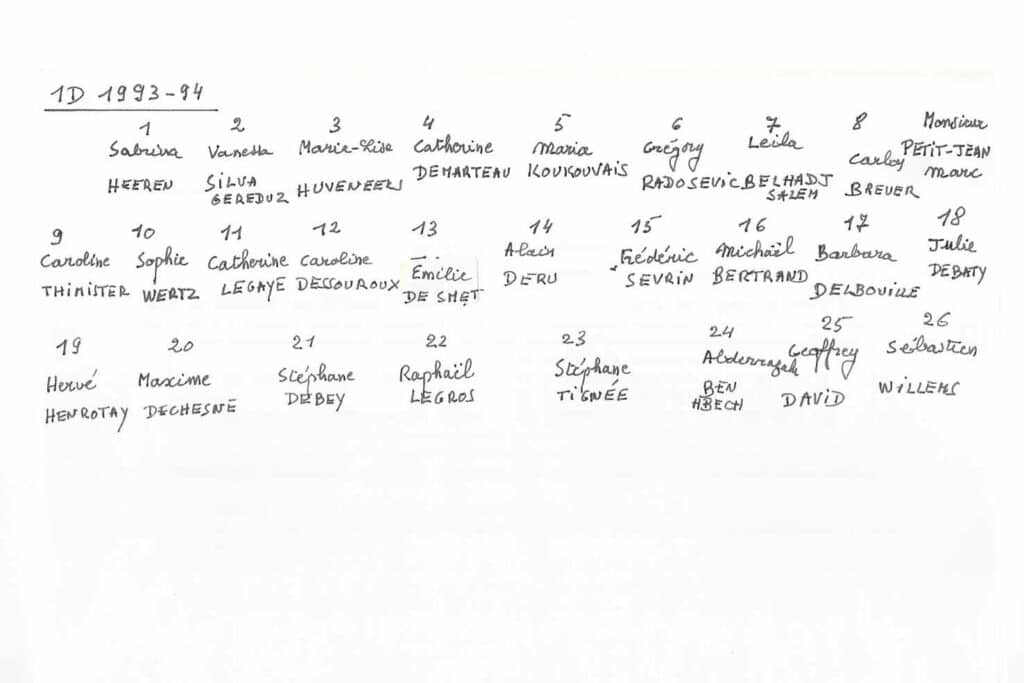 1D 1993-94
1 2 3 4 5 6 7 8 Monsieur
Sabrina Vanessa Marie-Lise Catherine Maria Grégory Leila Carlos PETIT-JEAN
HEEREN SILVA HUVENEERS DEMARTEAU KOUKOUVAIS RADOSEVIC BELHADJ BREUER Marc
GEREDUZ SALEM
9 10 11 12 13 14 15 16 17 18
Caroline Sophie Catherine Caroline Émilie Alain Frédéric Michaël Barbara Julie
THIMISTER WERTZ LEGAYE DESSOUROUX DE SMET DERU SEVRIN BERTRAND DELBOUILLE DEBATY
19 20 21 22 23 24 25 26
Hervé Maxime Stéphane Raphaël Stéphane Abderrazak Geoffrey Sébastien
HENROTAY DECHESNE DEBEY LEGROS TIGNÉE BEN DAVID WILLEMS
HBECH